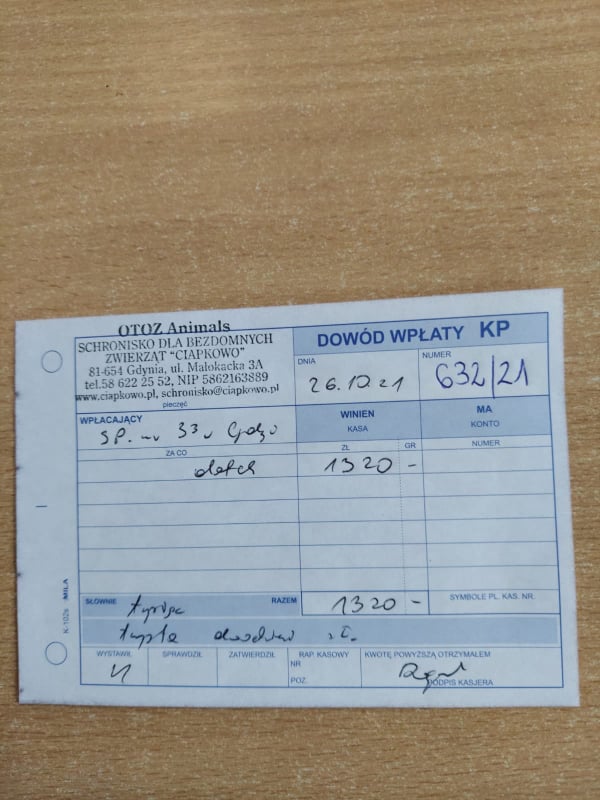 OTOZ Animals
SCHRONISKO DLA BEZDOMNYCH
ZWIERZĄT "CIAPKOWO"
81-654 Gdynia, ul. Małokacka 3A
tel.58 622 25 52, NIP 5862163889
www.ciapkowo.pl, schronisko@ciapkowo.pl
pieczęć
DOWÓD WPŁATY KP
DNIA
26.10.21
NUMER
632/21
WPŁACAJĄCY
SP. nr 33 w Gdyni
WINIEN
KASA
MA
KONTO
ZA CO
ZŁ
GR
NUMER
datek
1320 -
SŁOWNIE
tysiąc
RAZEM
1320 -
SYMBOLE PL. KAS. NR.
trzysta dwadzieścia zł.
WYSTAWIŁ
SPRAWDZIŁ
ZATWIERDZIŁ
RAP. KASOWY
NR
POZ.
KWOTĘ POWYŻSZĄ OTRZYMAŁEM
PODPIS KASJERA
K-102s MILA